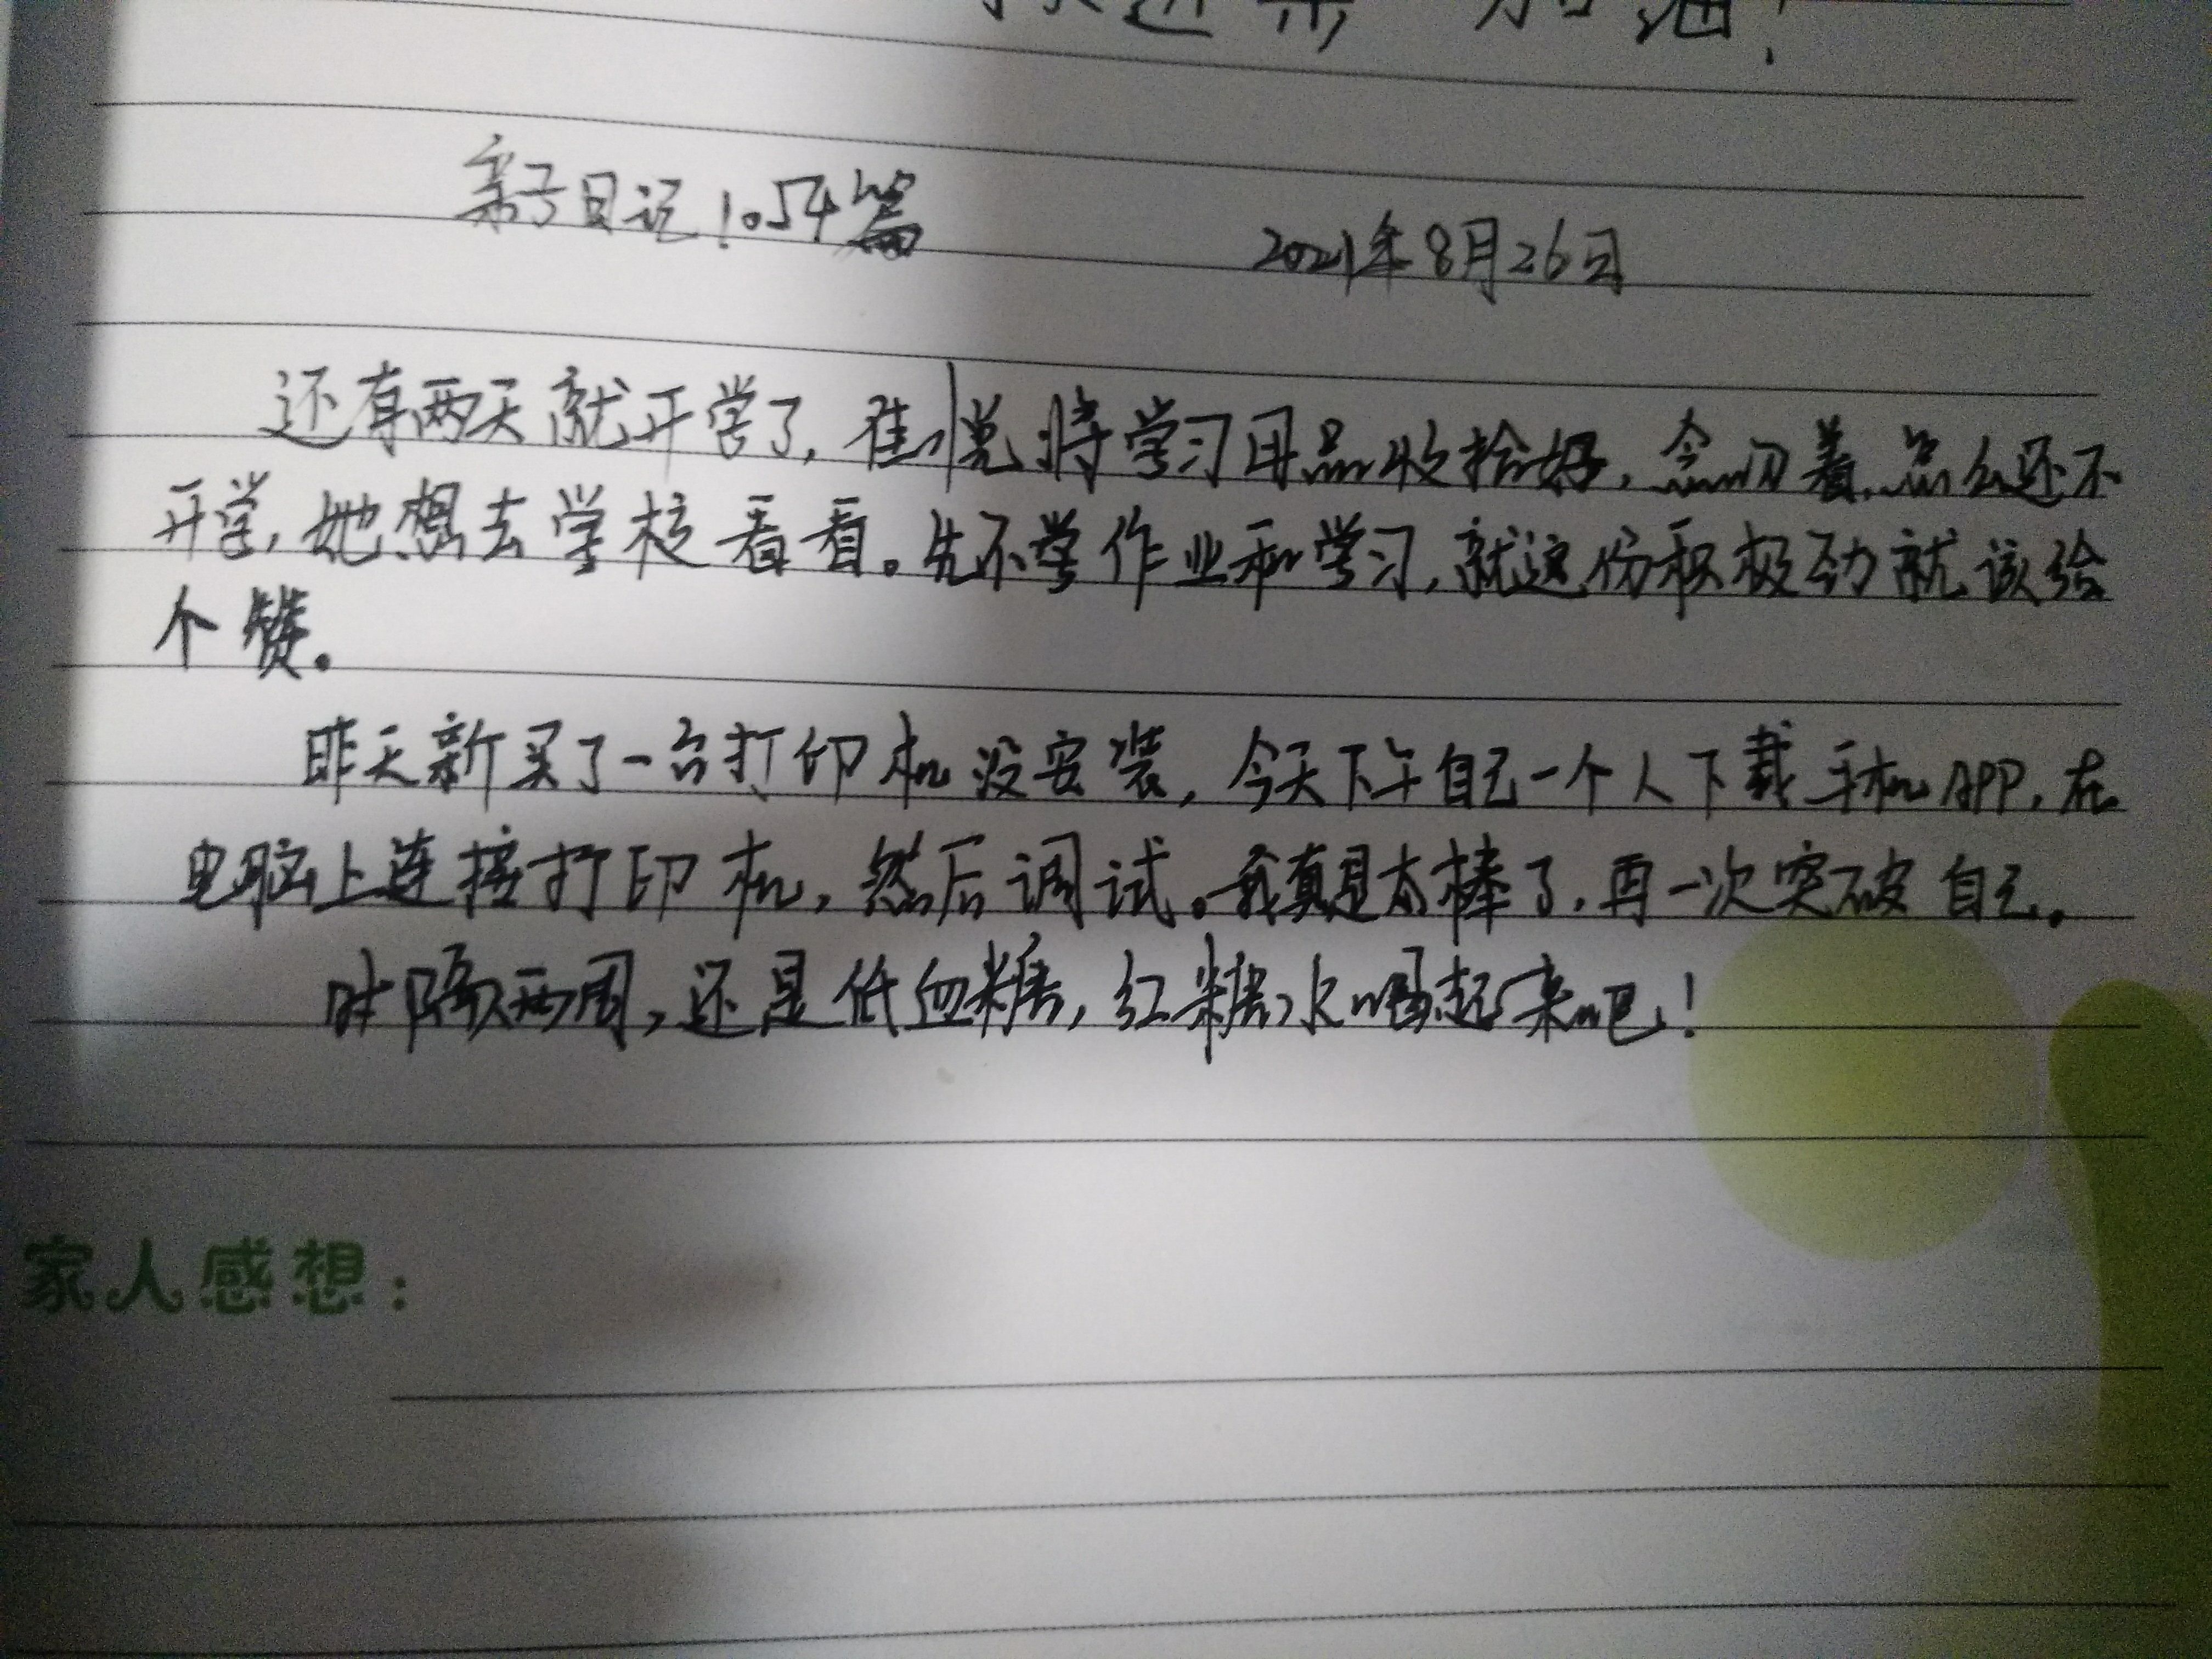 加油!
亲子日记1054篇
2021年8月26日
还有两天就开学了,佳悦将学习用品收拾好,念叨着,怎么还不
开学,她想去学校看看。先不学作业和学习,就这份积极劲就该给
个赞。
昨天新买了一台打印机没安装,今天下午自己一个人下载手机APP,在
电脑上连接打印机,然后调试。我真是太棒了,再一次突破自己。
时隔两周,还是低血糖,红糖水喝起来吧!
家人感想: